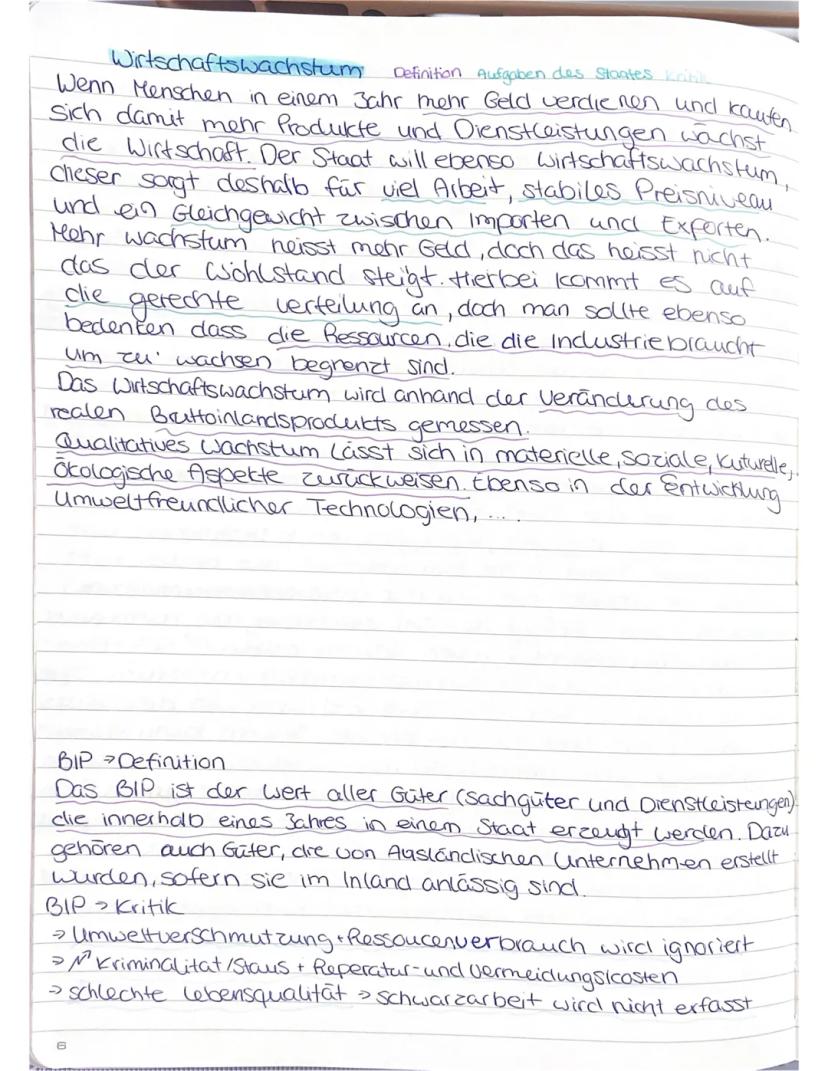 Wirtschaftswachstum Definition Aufgaben des Staates Kritik
Wenn Menschen in einem Jahr mehr Geld verdienen und kaufen
sich damit mehr Produkte und Dienstleistungen wächst
die Wirtschaft. Der Staat will ebenso Wirtschaftswachstum,
dieser sorgt deshalb für viel Arbeit, stabiles Preisniveau
und ein Gleichgewicht zwischen Importen und Exporten.
Mehr wachstum heisst mehr Geld, doch das heisst nicht
das der Wohlstand steigt. Hierbei kommt es auf
die gerechte verteilung an, doch man sollte ebenso
bedenken dass die Ressourcen, die die Industrie braucht
um zu wachsen begrenzt sind.
Das Wirtschaftswachstum wird anhand der Veränderung des
realen Bruttoinlandsprodukts gemessen.
Qualitatives Wachstum lässt sich in materielle, soziale, kuturelle,
Ökologische Aspekte zurückweisen. Ebenso in der Entwicklung
Umweltfreundlicher Technologien, ....
BIP → Definition
Das BIP ist der Wert aller Güter (Sachgüter und Dienstleistungen)
die innerhalb eines Jahres in einem Staat erzeugt werden. Dazu
gehören auch Güter, die von Ausländischen Unternehmen erstellt
wurden, sofern sie im Inland anlässig sind.
BIP → Kritik
→ Umweltverschmutzung + Ressoucenverbrauch wird ignoriert
→ ↗ Kriminalität/Staus + Reperatur- und Vermeidungskosten
→ schlechte Lebensqualität → Schwarzarbeit wird nicht erfasst
6